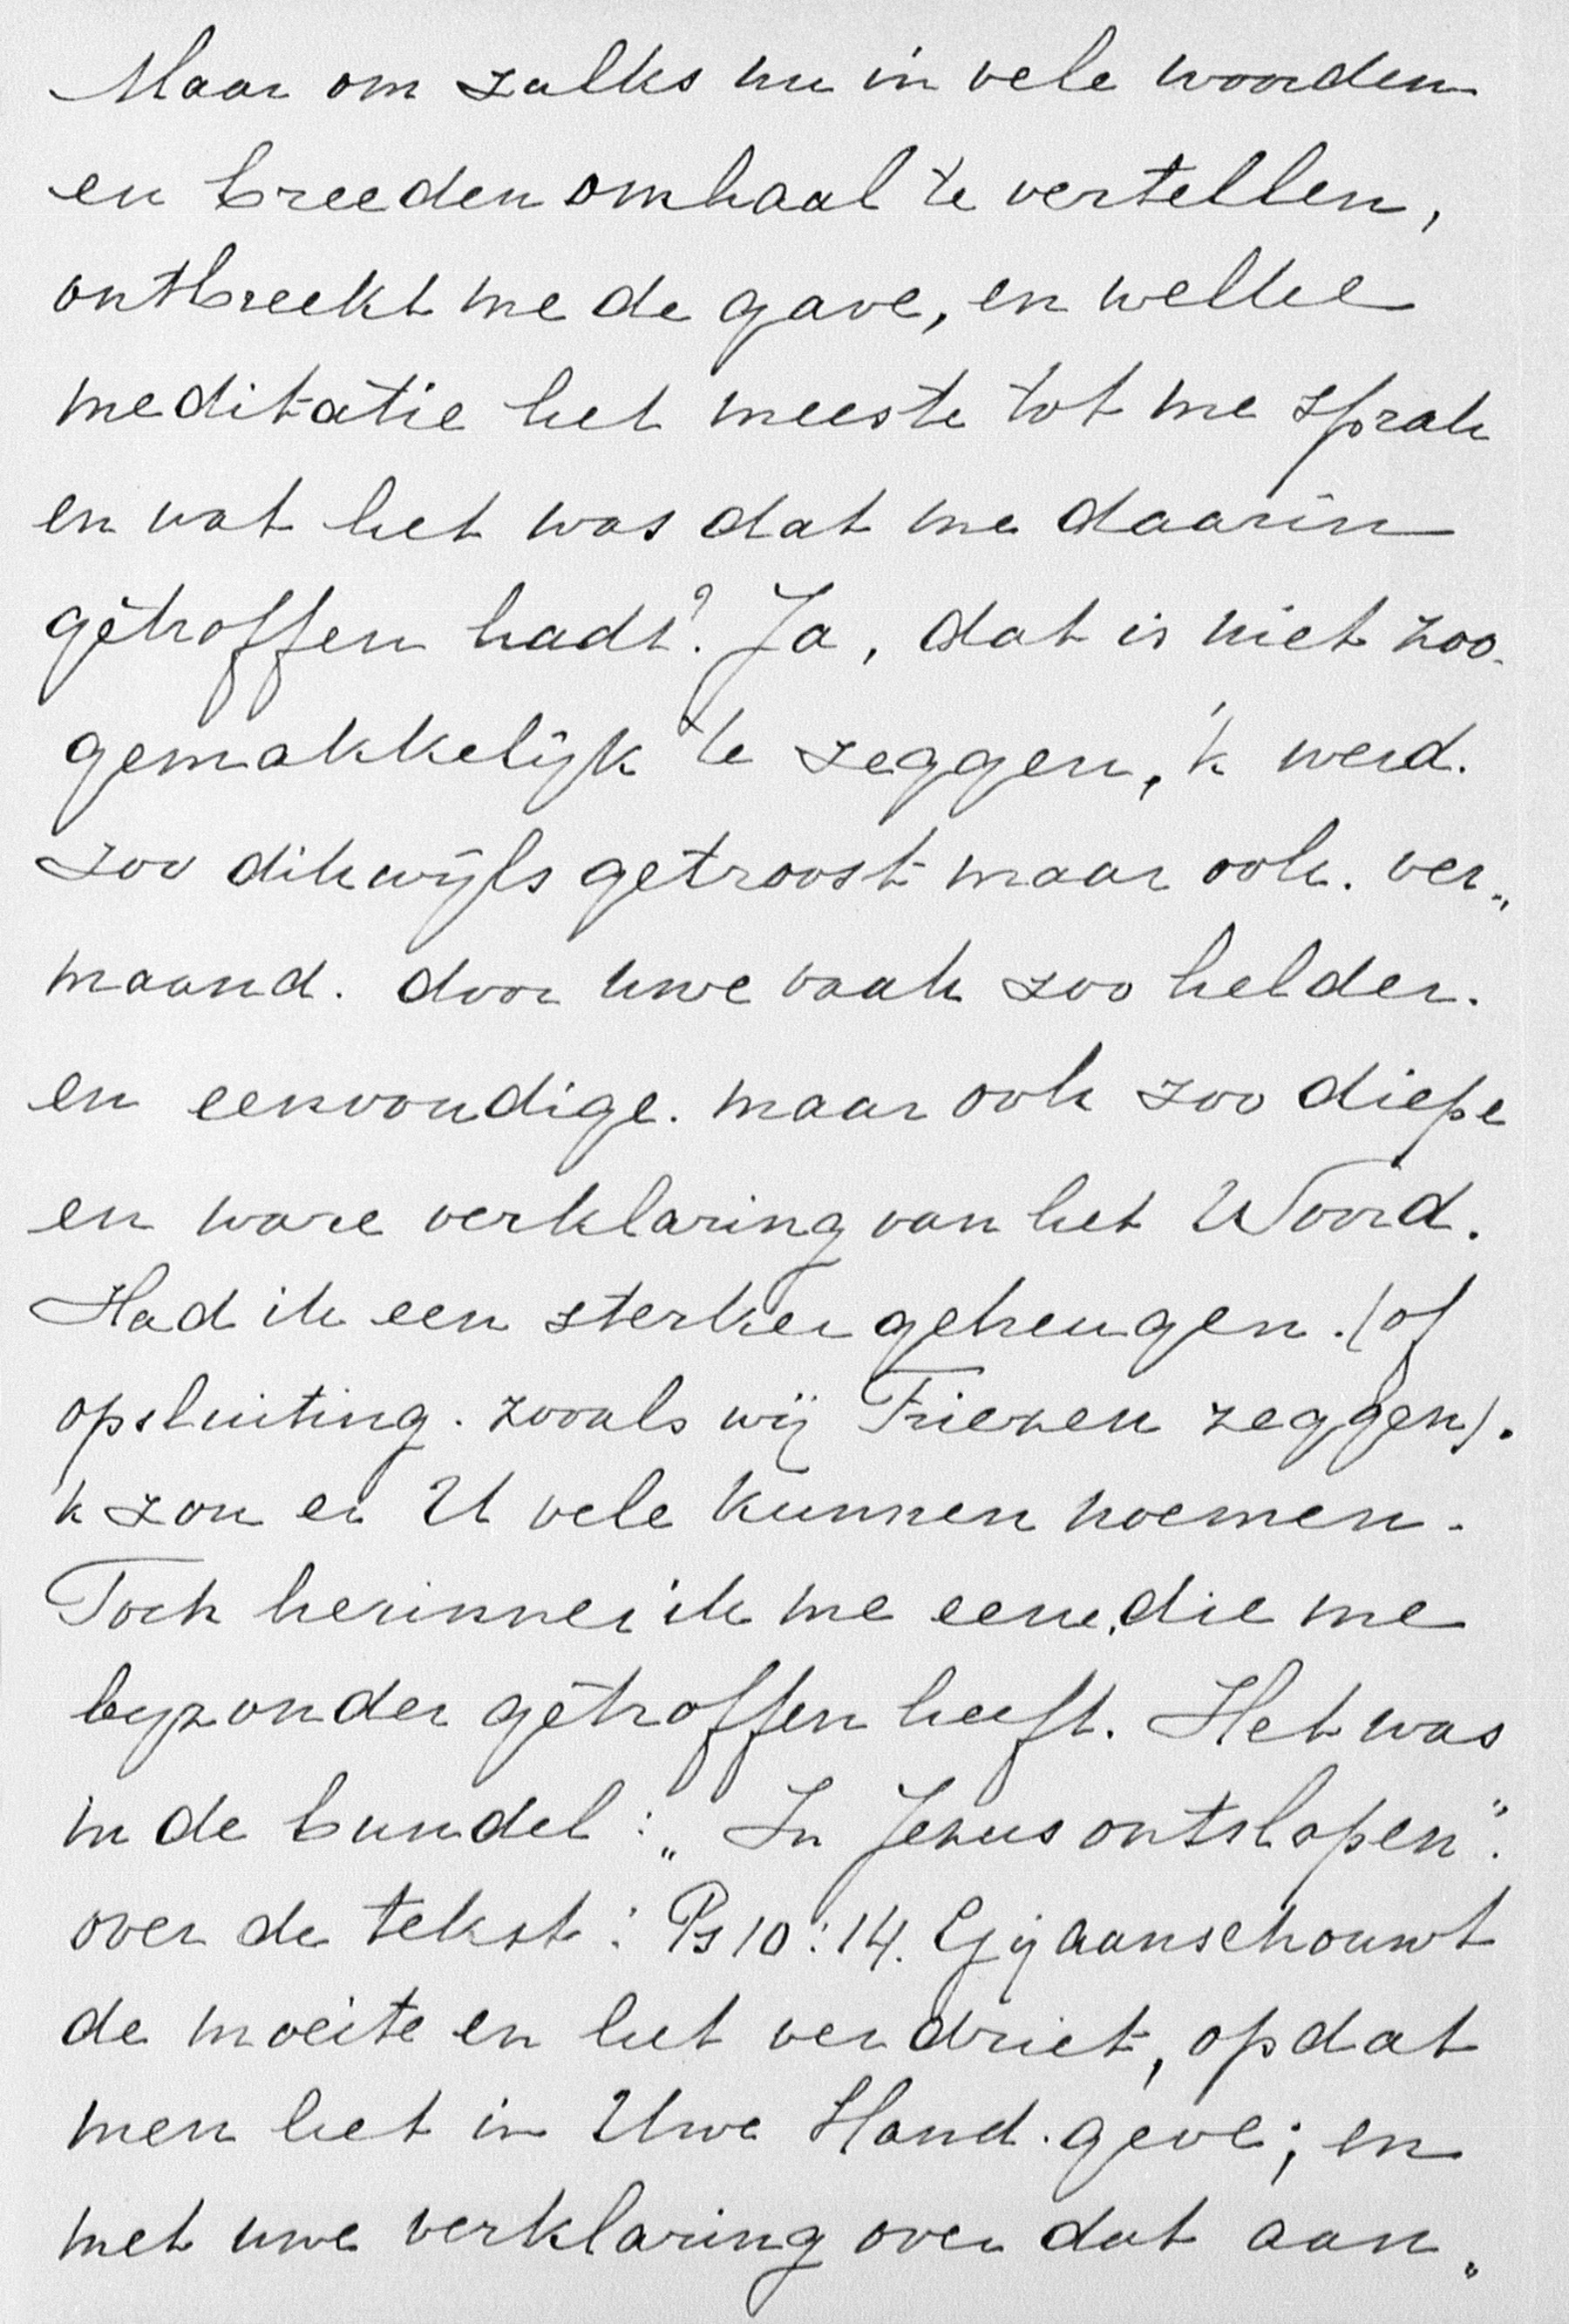 Maar om zulks nu in vele woorden
en breeden omhaal te vertellen,
ontbreekt me de gave, en welke
meditatie het meeste tot me sprak
en wat het was dat me daarin
getroffen hadt? Ja, dat is niet zoo
gemakkelijk te zeggen, 'k werd.
zoo dikwijls getroost maar ook. ver„
maand. door uwe vaak zoo helder.
en eenvoudige. maar ook zoo diepe
en ware verklaring van het Woord.
Had ik een sterker geheugen. (of
opsluiting. zooals wij Friezen zeggen).
k zou er U vele kunnen noemen.
Toch herinner ik me eene, die me
byzonder getroffen heeft. Het was
in de bundel: „In Jezus ontslapen".
over de tekst: Ps 10:14. Gij aanschouwt
de moeite en het verdriet, opdat
men het in Uwe Hand. geve; en
met uwe verklaring over dat aan„